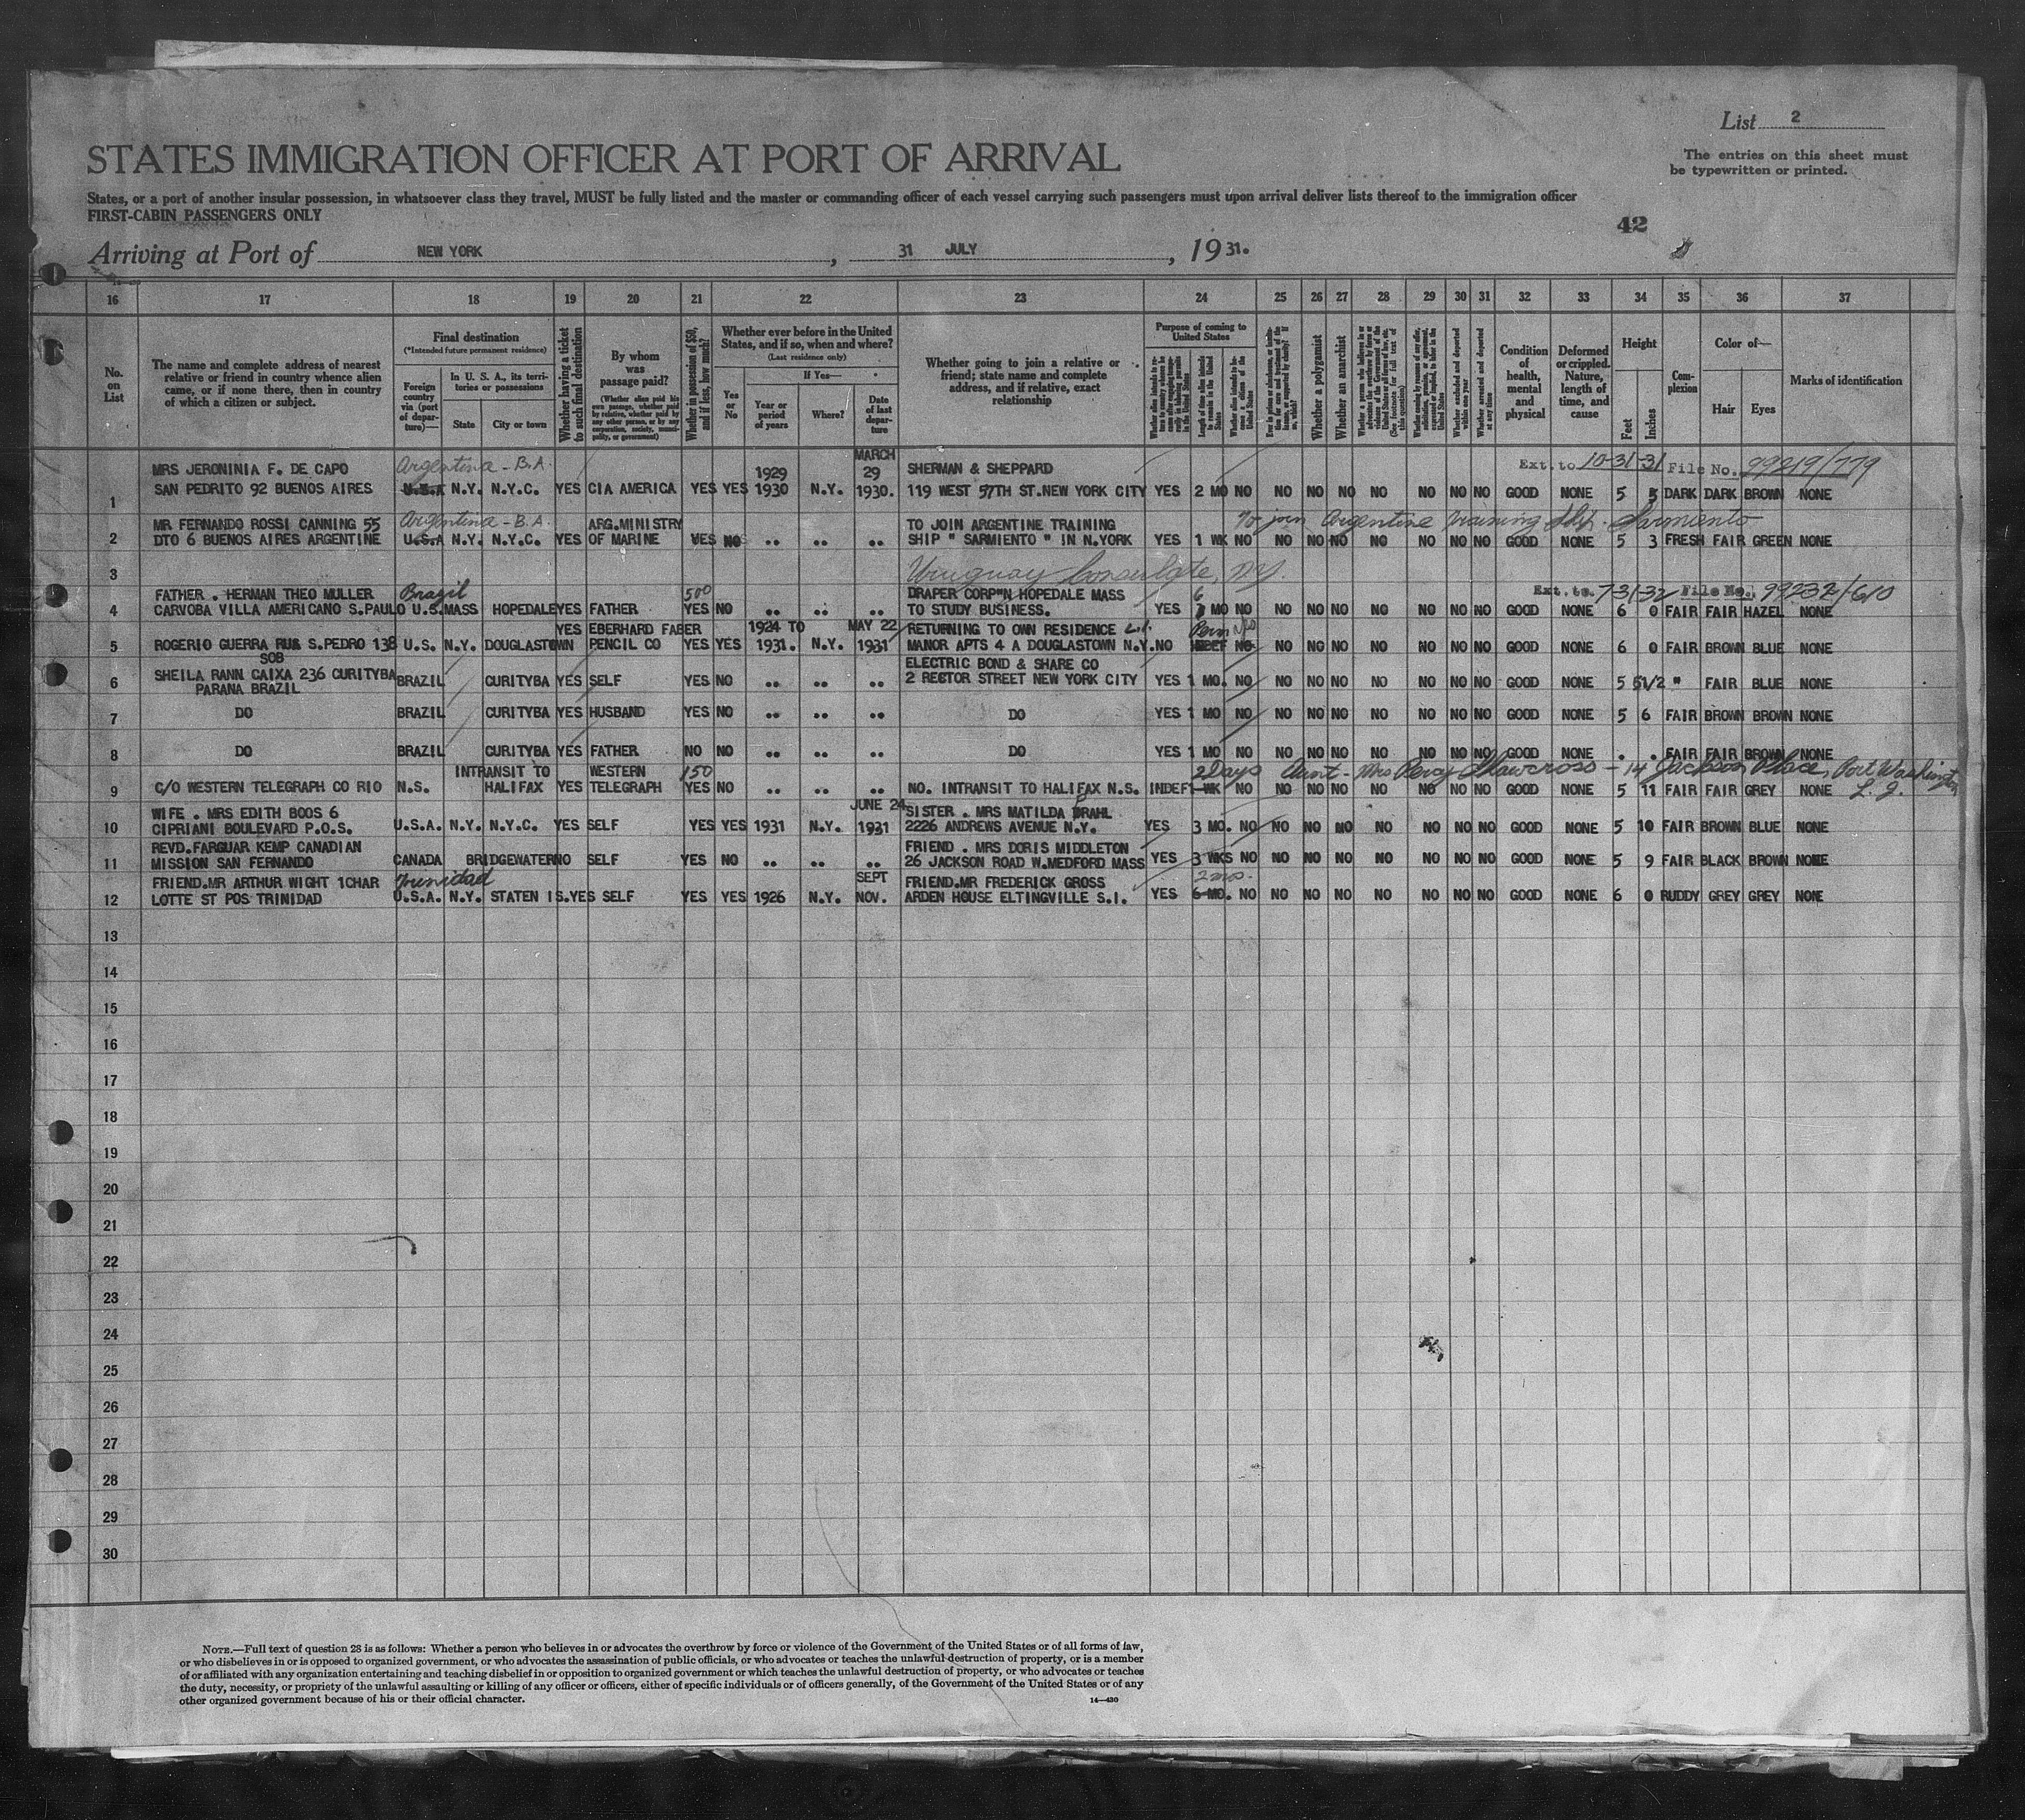 List 2
The entries on this sheet must
be typewritten or printed.
STATES IMMIGRATION OFFICER AT PORT OF ARRIVAL
States, or a port of another insular possession, in whatsoever class they travel, MUST be fully listed and the master or commanding officer of each vessel carrying such passengers must upon arrival deliver lists thereof to the immigration officer
FIRST-CABIN PASSENGERS ONLY
42
Arriving at Port of NEW YORK, 31 JULY, 1931.
16 17 18 19 20 21 22 23 24 25 26 27 28 29 30 31 32 33 34 35 36 37
No. on List
The name and complete address of nearest relative or friend in country whence alien came, or if none there, then in country of which a citizen or subject.
Final destination
(*Intended future permanent residence)
Foreign country via (port of departure)—
In U. S. A., its territories or possessions
State
City or town
Whether having a ticket to such final destination
By whom was passage paid?
(Whether alien paid his own passage, whether paid by relative, whether paid by any other person, or by any corporation, society, municipality, or government)
Whether in possession of $50, and if less, how much?
Whether ever before in the United States, and if so, when and where?
(Last residence only)
Yes or No
If Yes—
Year or period of years
Where?
Date of last departure
Whether going to join a relative or friend; state name and complete address, and if relative, exact relationship
Purpose of coming to United States
Whether a polygamist
Whether an anarchist
Condition of health, mental and physical
Deformed or crippled. Nature, length of time, and cause
Height
Feet
Inches
Complexion
Color of—
Hair
Eyes
Marks of identification
MRS JERONINIA F. DE CAPO Argentina - B.A. 1929 MARCH 29 SHERMAN & SHEPPARD Ext. to 10-31-31 File No. 99219/779
1 SAN PEDRITO 92 BUENOS AIRES U.S.A N.Y. N.Y.C. YES CIA AMERICA YES YES 1930 N.Y. 1930. 119 WEST 57TH ST.NEW YORK CITY YES 2 MO NO NO NO NO NO NO NO NO GOOD NONE 5 5 DARK DARK BROWN NONE
MR FERNANDO ROSSI CANNING 55 Argentina - B.A. ARG.MINISTRY TO JOIN ARGENTINE TRAINING To join Argentine Training Ship. Sarmiento
2 DTO 6 BUENOS AIRES ARGENTINE U.S.A N.Y. N.Y.C. YES OF MARINE YES NO .. .. .. SHIP " SARMIENTO " IN N.YORK YES 1 WK NO NO NO NO NO NO NO NO GOOD NONE 5 3 FRESH FAIR GREEN NONE
3 Uruguay Consulate, N.Y.
FATHER . HERMAN THEO MULLER Brazil 500 DRAPER CORP"N HOPEDALE MASS 6 Ext. to 7-31-32 File No. 99232/610
4 CARVOBA VILLA AMERICANO S.PAULO U.S. MASS HOPEDALE YES FATHER YES NO .. .. .. TO STUDY BUSINESS. YES MO NO NO NO NO NO NO NO NO GOOD NONE 6 0 FAIR FAIR HAZEL NONE
YES EBERHARD FABER 1924 TO MAY 22 RETURNING TO OWN RESIDENCE L.I. Perm No
5 ROGERIO GUERRA RUA S.PEDRO 138 U.S. N.Y. DOUGLASTOWN PENCIL CO YES YES 1931. N.Y. 1931 MANOR APTS 4 A DOUGLASTOWN N.Y. NO INDEF NO NO NO NO NO NO NO NO GOOD NONE 6 0 FAIR BROWN BLUE NONE
SOB ELECTRIC BOND & SHARE CO
6 SHEILA RANN CAIXA 236 CURITYBA BRAZIL CURITYBA YES SELF YES NO .. .. .. 2 RECTOR STREET NEW YORK CITY YES 1 MO. NO NO NO NO NO NO NO NO GOOD NONE 5 5 1/2 " FAIR BLUE NONE
PARANA BRAZIL
7 DO BRAZIL CURITYBA YES HUSBAND YES NO .. .. .. DO YES 1 MO NO NO NO NO NO NO NO NO GOOD NONE 5 6 FAIR BROWN BROWN NONE
8 DO BRAZIL CURITYBA YES FATHER NO NO .. .. .. DO YES 1 MO NO NO NO NO NO NO NO NO GOOD NONE . . FAIR FAIR BROWN NONE
INTRANSIT TO WESTERN 150 2 Days Aunt - Mrs Percy Shawcross - 14 Jackson Place, Port Washington
9 C/O WESTERN TELEGRAPH CO RIO N.S. HALIFAX YES TELEGRAPH YES NO .. .. .. NO. INTRANSIT TO HALIFAX N.S. INDEF 1 WK NO NO NO NO NO NO NO NO GOOD NONE 5 11 FAIR FAIR GREY NONE L.I.
WIFE . MRS EDITH BOOS 6 JUNE 24 SISTER . MRS MATILDA PRAHL
10 CIPRIANI BOULEVARD P.O.S. U.S.A. N.Y. N.Y.C. YES SELF YES YES 1931 N.Y. 1931 2226 ANDREWS AVENUE N.Y. YES 3 MO. NO NO NO NO NO NO NO NO GOOD NONE 5 10 FAIR BROWN BLUE NONE
REVD.FARGUAR KEMP CANADIAN FRIEND . MRS DORIS MIDDLETON
11 MISSION SAN FERNANDO CANADA BRIDGEWATER NO SELF YES NO .. .. .. 26 JACKSON ROAD W.MEDFORD MASS YES 3 WKS NO NO NO NO NO NO NO NO GOOD NONE 5 9 FAIR BLACK BROWN NONE
FRIEND.MR ARTHUR WIGHT 1CHAR Trinidad SEPT FRIEND.MR FREDERICK GROSS 2 mos.
12 LOTTE ST POS TRINIDAD U.S.A. N.Y. STATEN IS. YES SELF YES YES 1926 N.Y. NOV. ARDEN HOUSE ELTINGVILLE S.I. YES 6 MO. NO NO NO NO NO NO NO NO GOOD NONE 6 0 RUDDY GREY GREY NONE
13
14
15
16
17
18
19
20
21
22
23
24
25
26
27
28
29
30
NOTE.—Full text of question 28 is as follows: Whether a person who believes in or advocates the overthrow by force or violence of the Government of the United States or of all forms of law,
or who disbelieves in or is opposed to organized government, or who advocates the assassination of public officials, or who advocates or teaches the unlawful destruction of property, or is a member
of or affiliated with any organization entertaining and teaching disbelief in or opposition to organized government or which teaches the unlawful destruction of property, or who advocates or teaches
the duty, necessity, or propriety of the unlawful assaulting or killing of any officer or officers, either of specific individuals or of officers generally, of the Government of the United States or of any
other organized government because of his or their official character.
14—430